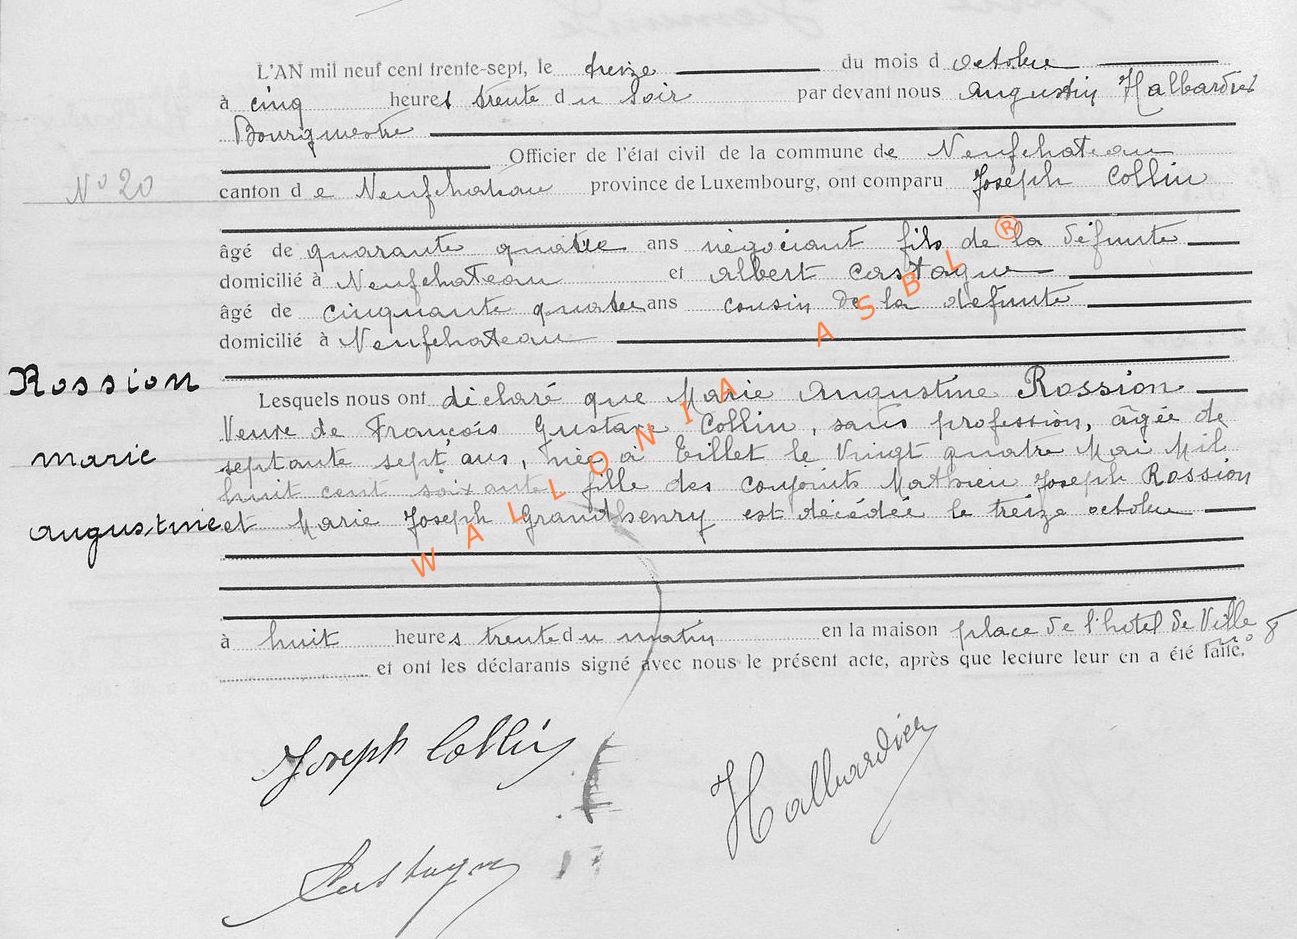 L'AN mil neuf cent trente-sept, le treize du mois d octobre
à cinq heures trente du soir par devant nous Augustin Halbardier
Bourgmestre
Officier de l'état civil de la commune de Neufchateau
N° 20
canton de Neufchateau province de Luxembourg, ont comparu Joseph Collin
âgé de quarante quatre ans négociant fils de la défunte
domicilié à Neufchateau et Albert Castagne
âgé de cinquante quatre ans cousin de la défunte
domicilié à Neufchateau
Rossion
marie
augustine
Lesquels nous ont déclaré que Marie Augustine Rossion
Veuve de François Gustave Collin, sans profession, âgée de
septante sept ans, née à Tillet le Vingt quatre Mai Mil
huit cent soixante fille des conjoints Mathieu Joseph Rossion
et Marie Joseph Grandhenry est décédée le treize octobre
à huit heures trente du matin en la maison place de l'hotel de Ville n° 8
et ont les déclarants signé avec nous le présent acte, après que lecture leur en a été faite.
Joseph Collin
Halbardier
Castagne
WALLONIA ASBL ®